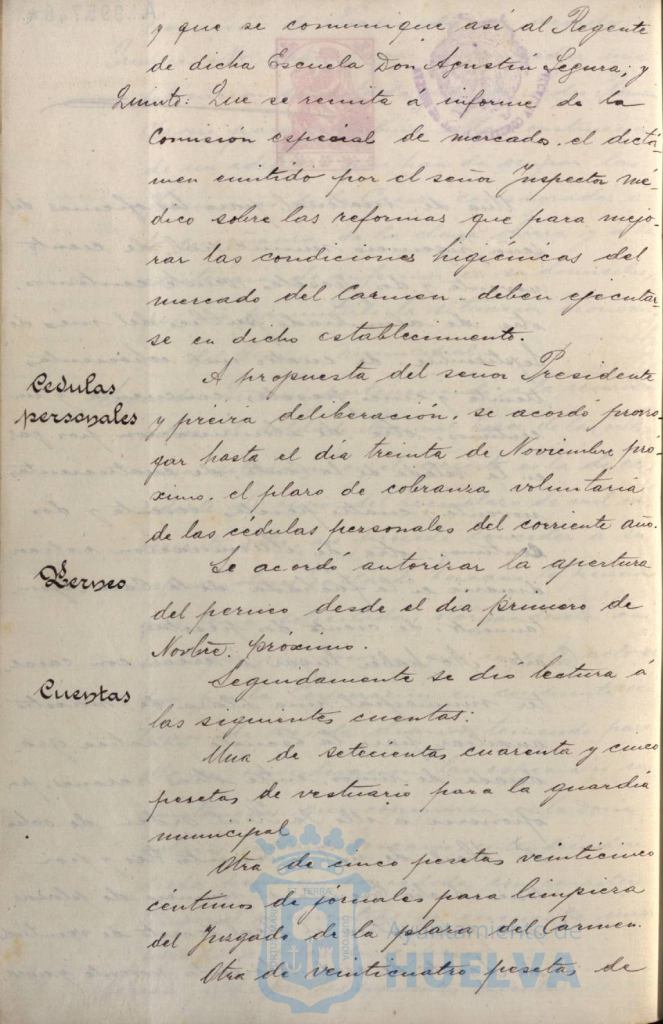 y que se comunique así al Regente
de dicha Escuela Don Agustín Segura; y
Quinto: Que se remita á informe de la
Comisión especial de mercado el dictá-
men emitido por el señor Inspector mé-
dico sobre las reformas que para mejo-
rar las condiciones higiénicas del
mercado del Carmen deben ejecutar-
se en dicho establecimiento.
Cedulas
personales
A propuesta del señor Presidente
y previa deliberación, se acordó prorro-
gar hasta el día treinta de Noviembre pró-
ximo, el plazo de cobranza voluntaria
de las cédulas personales del corriente año.
Perneo
Se acordó autorizar la apertura
del perneo desde el dia primero de
Novbre. próximo.
Cuentas
Seguidamente se dió lectura á
las siguientes cuentas:
Una de setecientas cuarenta y cinco
pesetas de vestuario para la guardia
municipal
Otra de cinco pesetas veinticinco
céntimos de jornales para limpieza
del Juzgado de la plaza del Carmen.
Otra de veinticuatro pesetas de
Ayuntamiento de
HUELVA